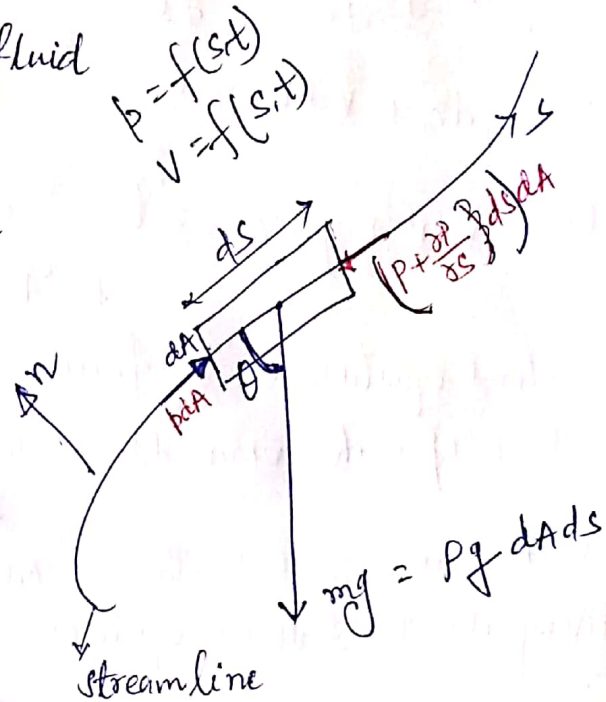 fluid
p = f(s,t)
v = f(s,t)
s
ds
(p + ∂p/∂s ds) dA
dA
θ
pdA
n
mg = ρg dAds
streamline